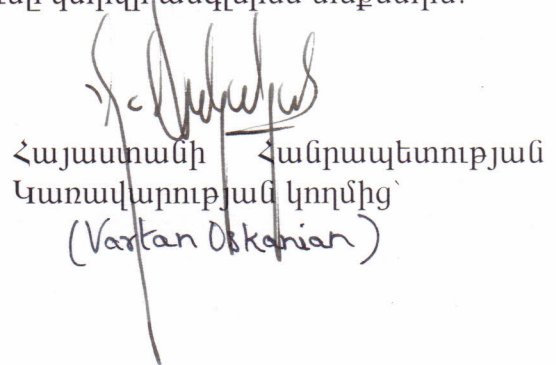 Հայաստանի Հանրապետության
Կառավարության կողմից՝
(Vartan Oskanian)